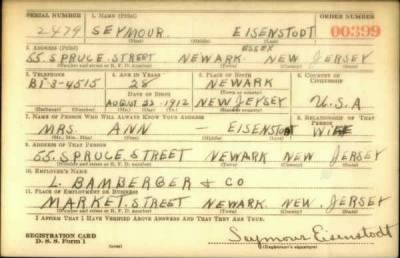 SERIAL NUMBER 1. NAME (Print) ORDER NUMBER
2479 SEYMOUR EISENSTODT 00399
(First) (Middle) (Last)
2. ADDRESS (Print) ESSEX
55 SPRUCE STREET NEWARK NEW JERSEY
(Number and street or R. F. D. number) (Town) (County) (State)
3. TELEPHONE 4. AGE IN YEARS 5. PLACE OF BIRTH 6. COUNTRY OF CITIZENSHIP
BI-3-4515 28 NEWARK
DATE OF BIRTH (Town or county)
AUGUST 22 1912 NEW JEYSEY U.S.A
(Exchange) (Number) (Mo.) (Day) (Yr.) (State or country)
7. NAME OF PERSON WHO WILL ALWAYS KNOW YOUR ADDRESS 8. RELATIONSHIP OF THAT PERSON
MRS. ANN — EISENSTODT WIFE
(Mr., Mrs., Miss) (First) (Middle) (Last)
9. ADDRESS OF THAT PERSON
55 SPRUCE STREET NEWARK NEW JERSEY
(Number and street or R. F. D. number) (Town) (County) (State)
10. EMPLOYER'S NAME
L. BAMBERGER & CO
11. PLACE OF EMPLOYMENT OR BUSINESS
MARKET STREET NEWARK NEW JERSEY
(Number and street or R. F. D. number) (Town) (County) (State)
I AFFIRM THAT I HAVE VERIFIED ABOVE ANSWERS AND THAT THEY ARE TRUE.
REGISTRATION CARD Seymour Eisenstodt
D. S. S. Form 1 (Registrant's signature)